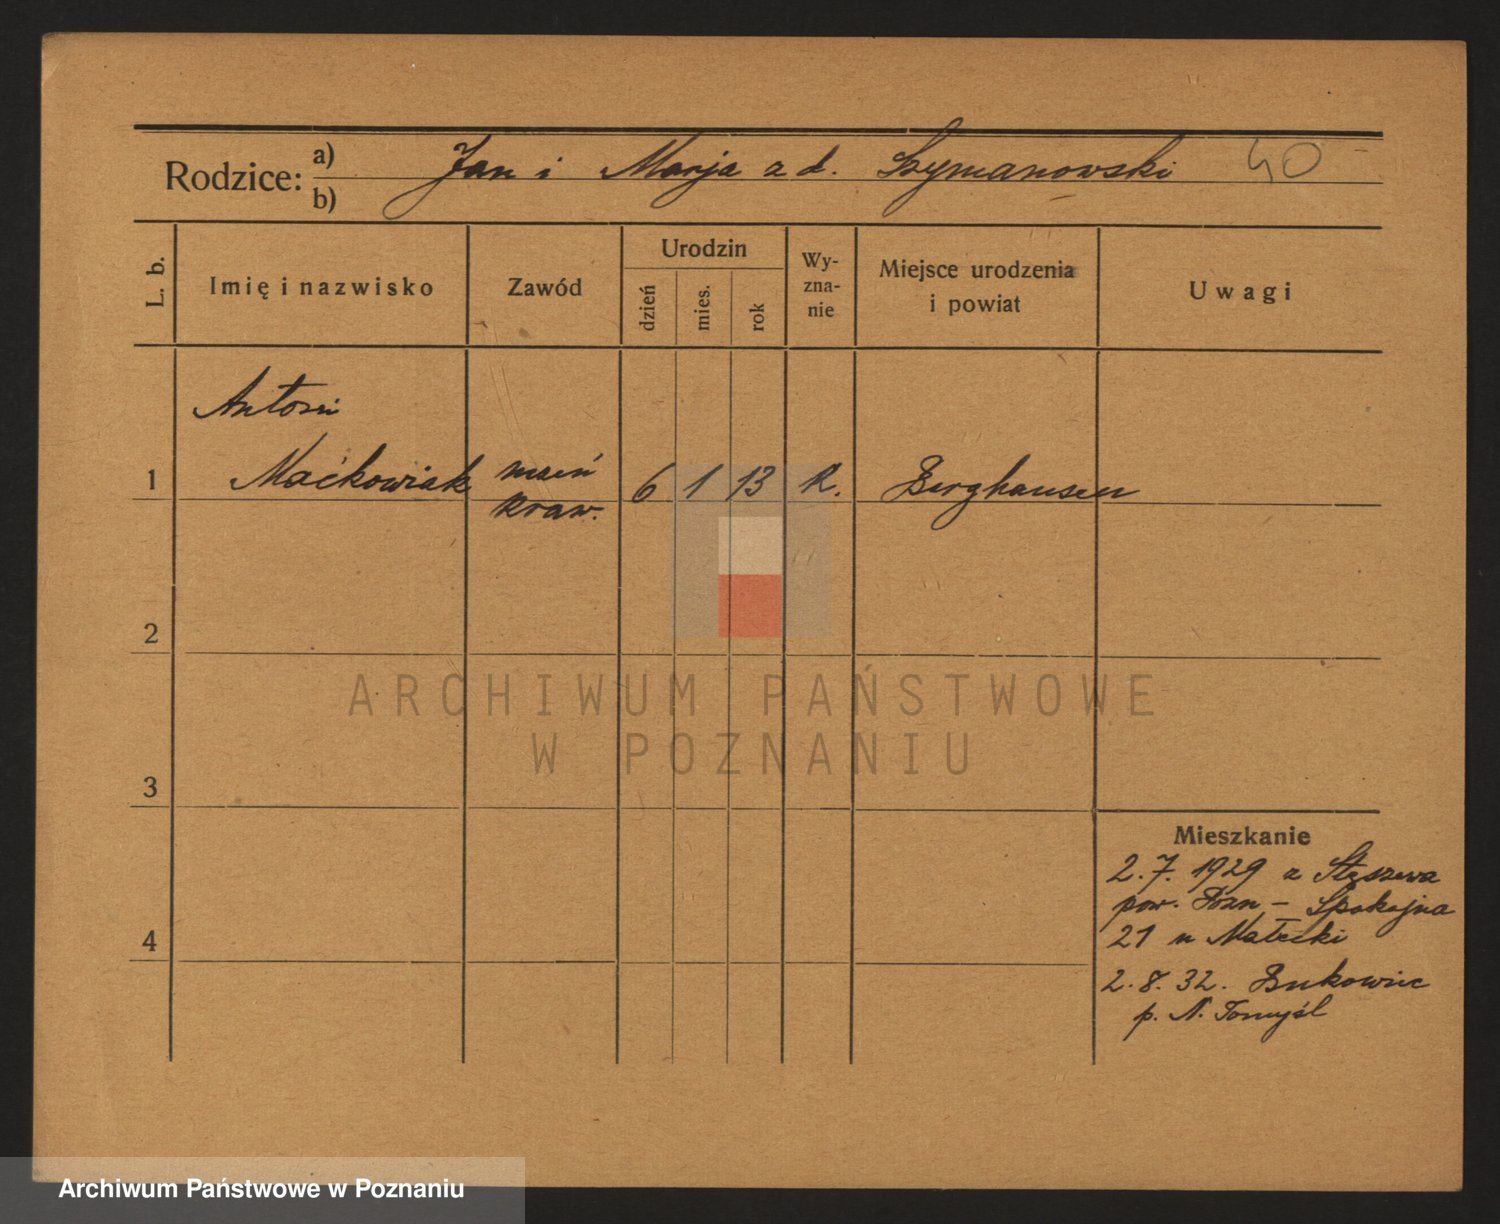 Rodzice: a) Jan i Marja z d. Szymanowski 40
b)
L. b.
Imię i nazwisko
Zawód
Urodzin
dzień
mies.
rok
Wy-
zna-
nie
Miejsce urodzenia
i powiat
Uwagi
Antoni
1 Maćkowiak uczeń 6 1 13 R. Berghausen
kraw.
2
ARCHIWUM PAŃSTWOWE
W POZNANIU
3
Mieszkanie
2.7.1929 z Stęszewa
pow. Pozn - Spokojna
4
21 u Małecki
2.8.32. Bukowiec
p. N. Tomyśl
Archiwum Państwowe w Poznaniu